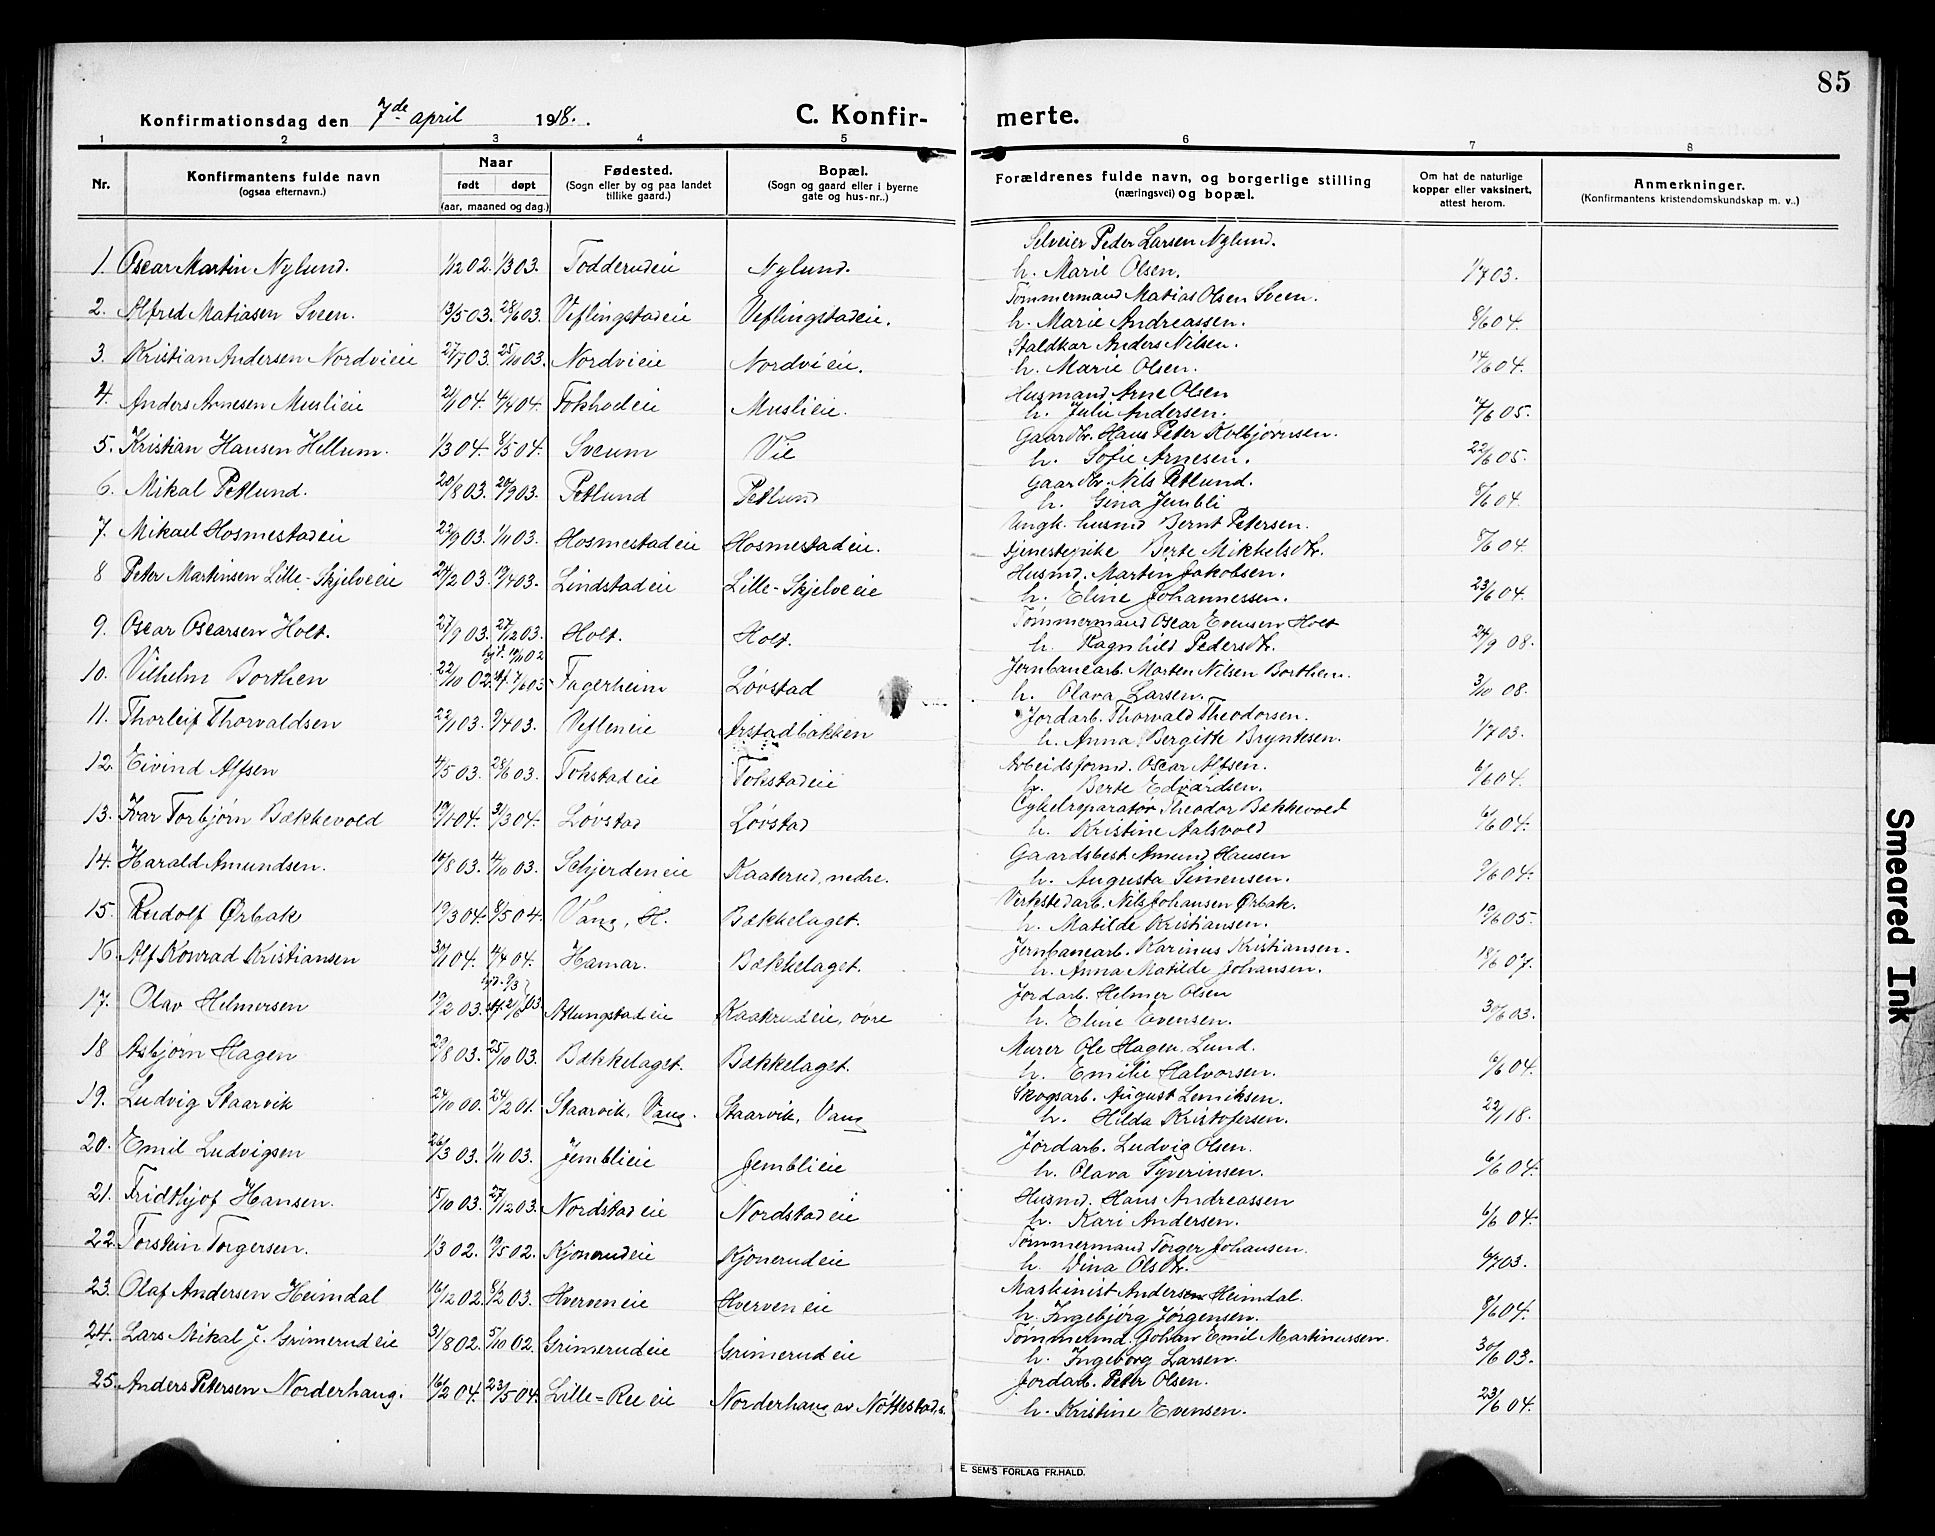 85
Konfirmationsdag den 7de april 1918.
C. Konfir- merte.
1 2 3 4 5 6 7 8
Nr.
Konfirmantens fulde navn
(ogsaa efternavn.)
Naar
født døpt
(aar, maaned og dag.)
Fødested.
(Sogn eller by og paa landet
tillike gaard.)
Bopæl.
(Sogn og gaard eller i byerne
gate og hus-nr..)
Forældrenes fulde navn, og borgerlige stilling
(næringsvei) og bopæl.
Om hat de naturlige
kopper eller vaksinert,
attest herom.
Anmerkninger.
(Konfirmantens kristendomskundskap m. v..)
Selveier Peder Larsen Nylund.
1. Oscar Martin Nylund. 1/12 02. 1/3 03. Todderudeie Nylund. h. Marie Olsen. 1/7 03.
Tømmermand Matias Olsen Sveen.
2. Alfred Matiasen Sveen. 13/5 03. 28/6 03. Veflingstadeie Veflingstadeie. h. Marie Andreassen. 8/6 04.
Staldkar Anders Nilsen.
3. Kristian Andersen Nordvieie 27/7 03. 25/10 03. Nordvieie Nordvieie. h. Marie Olsen. 14/6 04.
Husmand Arne Olsen
4. Anders Arnesen Muslieie 2/1 04. 4/4 04. Muslieie. h. Julie Andersen. 05.
Gaardbr. Hans Peter Kolbjørnsen.
5. Kristian Hansen Hellum. 1/3 04. 8/5 04. Sveum Vie h. Sofie Arnesen. 22/6 05.
Gaardbr. Nils Petlund.
6. Mikal Petlund. 20/8 03. 20/9 03. Petlund Petlund h. Gina Jembli 8/6 04.
Ungk. husmd Bernt Petersen.
7. Mikael Hosmestadeie 22/9 03. 1/11 03. Hosmestadeie Hosmestadeie. tjenestepike Berte Mikkelsdtr. 8/6 04.
Husmd. Martin Jakobsen.
8 Peter Martinsen Lille-Skjelveeie 24/2 03. 19/4 03. Lindstadeie Lille-Skjelveeie h. Eline Johannessen. 23/6 04.
Tømmermand Oscar Evensen Holt
9. Oscar Oscarsen Holt. 27/9 03. 27/12 03. Holt. Holt. h. Ragnhild Pedersdtr. 24/9 08.
Jernbanearb. Morten Nilsen Borthen.
10. Vilhelm Borthen 22/10 02. 7/6 03. Fagerheim Løvstad h. Olava Larsen. 3/10 08.
Jordarb. Thorvald Theodorsen.
11. Thorleif Thorvaldsen 22/1 03. 9/4 03. Nefleneie Arstadbakken h. Anna Bergitte Bryntesen. 1/7 03.
Arbeidsformd. Oscar Alfsen.
12. Eivind Alfsen 4/5 03. 28/6 03. Tokstadeie Tokstadeie h. Berte Edvardsen. 6/6 04.
Cykelreparatør Theodor Bækkevold
13. Ivar Torbjørn Bækkevold 19/1 04. 3/3 04. Løvstad Løvstad h. Kristine Aalsvold 6/6 04.
Gaardsbest. Amund Hansen
14. Harald Amundsen. 14/8 03. 4/10 03. Schjerdeneie Kaaterud, nedre. h. Augusta Simensen. 9/6 04.
Verkstedarb. Nils Johansen Ørbak.
15. Rudolf Ørbak 19/3 04. 8/5 04. Vang, H. Bækkelaget. h. Matilde Kristiansen. 05.
Jernbanearb. Karinus Kristiansen.
16. Alf Konrad Kristiansen 30/1 04. 4/4 04. Hamar. Bækkelaget. h. Anna Matilde Johansen. 18/6 07.
Jordarb. Helmer Olsen
17. Olav Helmersen 19/2 03. 03. Atlungstadeie Kaaterudeie, øvre h. Eline Evensen. 30/6 03.
Murer Ole Hagen. Lund.
18 Asbjørn Hagen 29/8 03. 25/10 03. Bækkelaget. Bækkelaget. h. Emilie Halvorsen. 6/6 04.
Skogsarb. August Lemiksen.
19. Ludvig Staarvik 24/10 00. 24/2 01. Staarvik, Vang. Staarvik, Vang h. Hilda Kristofersen. 22/1 18.
Jordarb. Ludvig Olsen.
20. Emil Ludvigsen 26/3 03. 1/11 03. Jemblieie Jemblieie h. Olava Syverinsen. 6/6 04.
Husmd. Hans Andreassen
21. Fridthjof Hansen. 15/10 03. 27/12 03. Nordstadeie Nordstadeie h. Kari Andersen. 6/6 04.
Tømmermand Torger Johansen.
22. Torstein Torgersen. 1/3 02. 19/5 02. Kjonerudeie Kjonerudeie h. Dina Olsdtr. 6/7 03.
Maskinist Andersen Heimdal.
23. Olaf Andersen Heimdal 16/12 02. 8/2 03. Hverveneie Hverveneie h. Ingebjørg Jørgensen. 8/6 04.
Tømmermd. Johan Emil Martinussen.
24. Lars Mikal J. Grimerudeie 31/8 02. 5/10 02. Grimerudeie Grimerudeie h. Ingeborg Larsen. 30/6 03.
Jordarb. Peter Olsen.
25. Anders Petersen Norderhaug. 16/2 04. 23/5 04. Lille-Ree eie Norderhaug av Nøttestad, h. Kristine Evensen. 23/6 04.
E. SEM'S FORLAG FR.HALD.
Smeared Ink